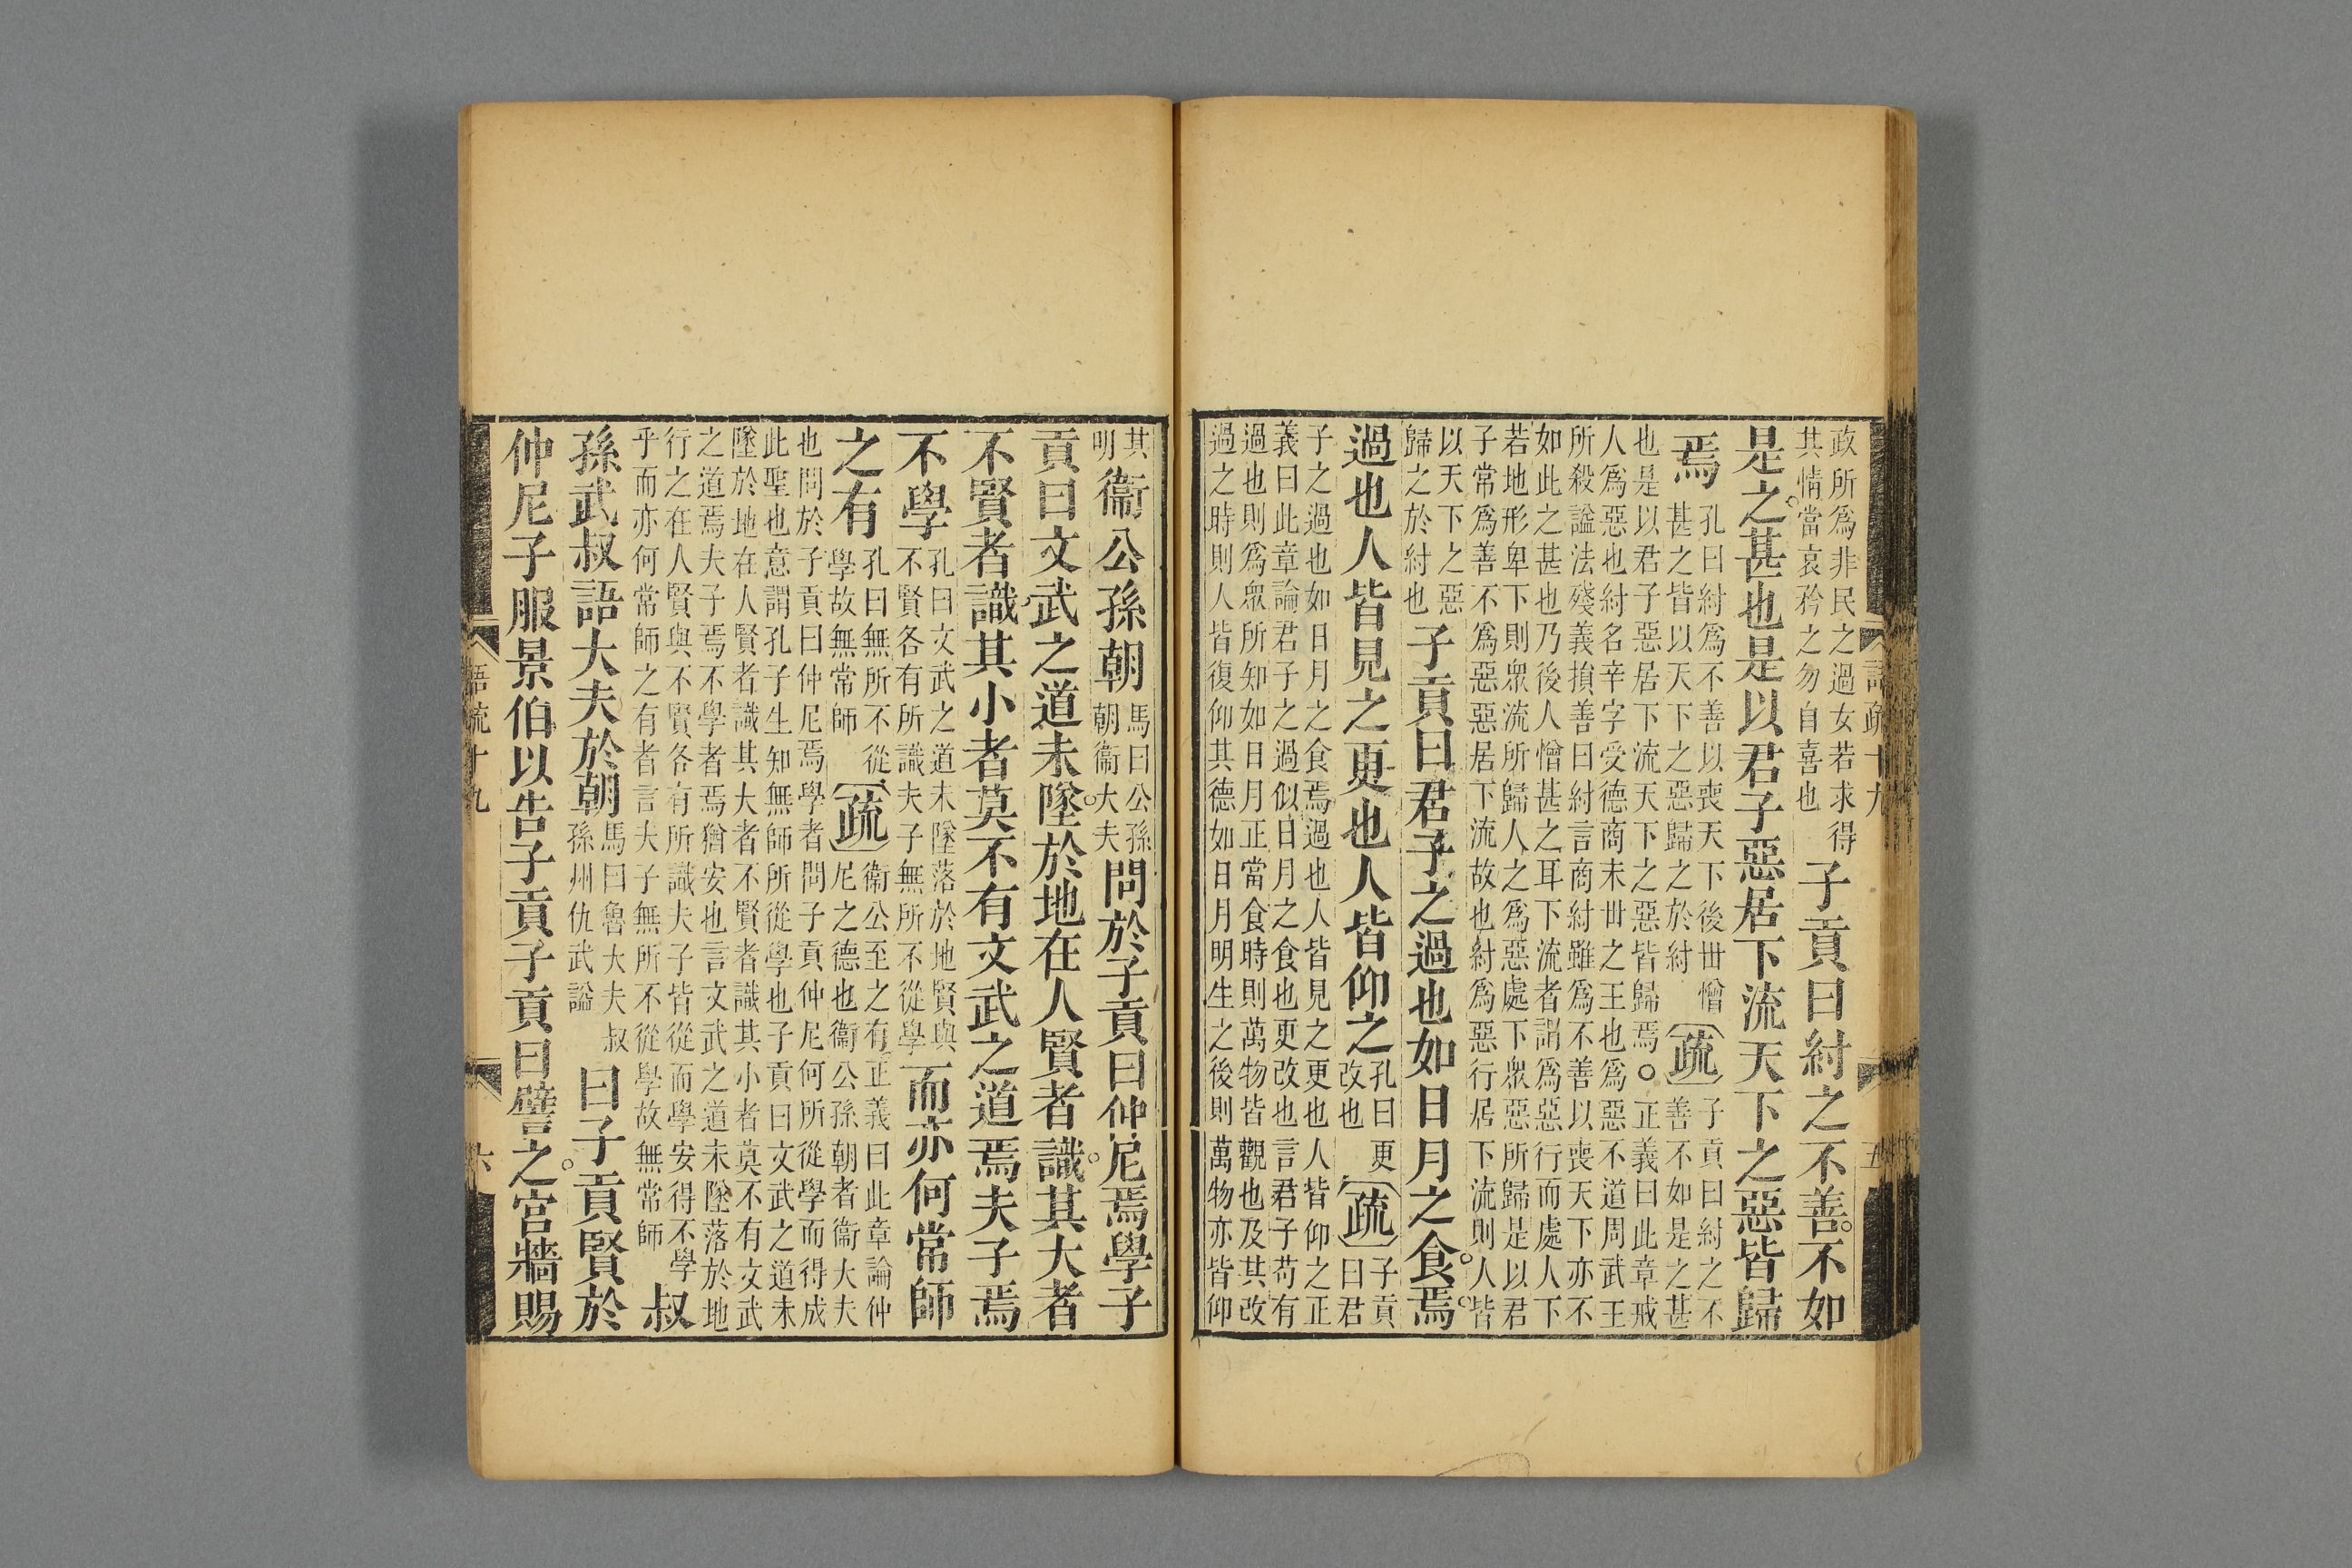 語疏十九
五
政所爲非民之過女若求得其情當哀矜之勿自喜也子貢曰紂之不善不如
是之甚也是以君子惡居下流天下之惡皆歸
焉孔曰紂爲不善以喪天下後世憎甚之皆以天下之惡歸之於紂疏子貢曰紂之不善不如是之甚
也是以君子惡居下流天下之惡皆歸焉○正義曰此章戒
人爲惡也紂名辛字受德商末世之王也爲惡不道周武王
所殺謚法殘義損善曰紂言商紂雖爲不善以喪天下亦不
如此之甚也乃後人憎甚之耳下流者謂爲惡行而處人下
若地形卑下則衆流所歸人之爲惡處下衆惡所歸是以君
子常爲善不爲惡惡居下流故也紂爲惡行居下流則人皆
以天下之惡歸之於紂也子貢曰君子之過也如日月之食焉
過也人皆見之更也人皆仰之孔曰更改也疏子貢曰君
子之過也如日月之食焉過也人皆見之更也人皆仰之正
義曰此章論君子之過似日月之食也更改也言君子苟有
過也則爲衆所知如日月正當食時則萬物皆觀也及其改
過之時則人皆復仰其德如日月明生之後則萬物亦皆仰
其明衞公孫朝馬曰公孫朝衞大夫問於子貢曰仲尼焉學子
貢曰文武之道未墜於地在人賢者識其大者
不賢者識其小者莫不有文武之道焉夫子焉
不學孔曰文武之道未墜落於地賢與不賢各有所識夫子無所不從學而亦何常師
之有孔曰無所不從學故無常師疏衞公至之有正義曰此章論仲尼之德也衞公孫朝者衞大夫
也問於子貢曰仲尼焉學者問子貢仲尼何所從學而得成
此聖也意謂孔子生知無師所從學也子貢曰文武之道未
墜於地在人賢者識其大者不賢者識其小者莫不有文武
之道焉夫子焉不學者焉猶安也言文武之道未墜落於地
行之在人賢與不賢各有所識夫子皆從而學安得不學
乎而亦何常師之有者言夫子無所不從學故無常師叔
孫武叔語大夫於朝馬曰魯大夫叔孫州仇武謚曰子貢賢於
仲尼子服景伯以告子貢子貢曰譬之宮牆賜
語疏十九
六